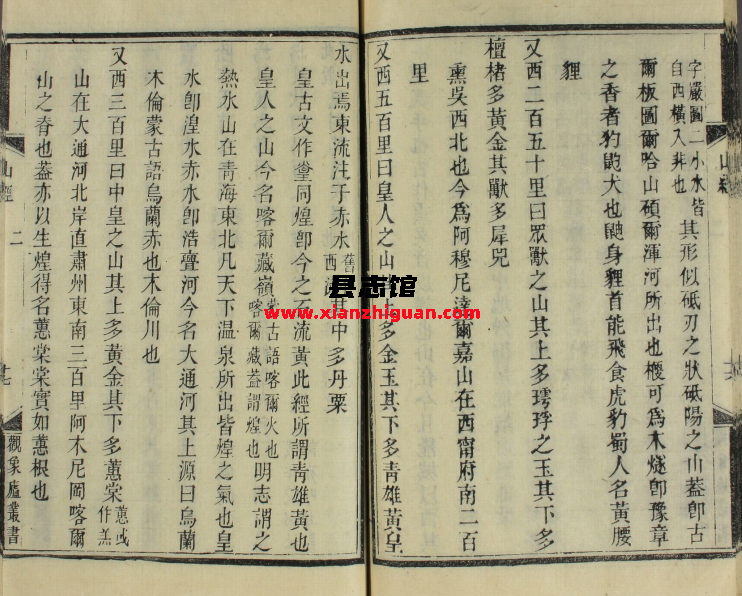 字嚴圖二小水皆
自西橫入非也
其形似砥刃之狀砥陽之山葢卽古
爾板圖爾哈山碩爾渾河所出也楩可爲木燧卽豫章
之香者豹大也身貍首能飛食虎豹蜀人名黄腰
貍
又西二百五十里曰眾獸之山其上多㻬琈之玉其下多
檀楮多黃金其獸多犀兕
熏吳西北也今爲阿穆尼達爾嘉山在西甯府南二百
里
又西五百里曰皇人之山上多金玉其下多青雄黃皇
山經
水出焉東流注于赤水
舊
西
其中多丹粟
皇古文作䍿同煌卽今之石流黃此經所謂青雄黃也
皇人之山今名喀爾藏嶺
蒙古語喀爾火也
喀爾藏葢謂煌也
明志謂之
熱水山在青海東北凡天下温泉所出皆煌之氣也皇
水卽湟水赤水卽浩亹河今名大通河其上源曰烏蘭
木倫蒙古語烏蘭赤也木倫川也
又西三百里曰中皇之山其上多黃金其下多蕙棠
蕙或
作羔
山在大通河北岸直肅州東南三百里阿木尼岡喀爾
山之脊也葢亦以生煌得名蕙棠棠實如蕙根也
山經
二
觀象廬叢書
县志馆
www.xianzhiguan.com